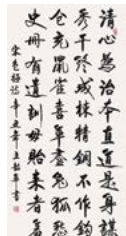 清心為治本直道是身謀
秀干终成棟精鋼不作鈎
仓充鼠雀喜草盡兔狐愁
史册有遺訓毋貽來者羞
宋包拯詩